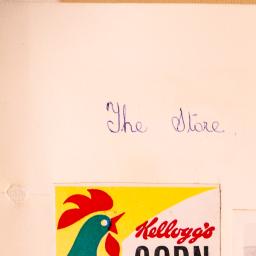 The Store.
Kellogg's
CORN